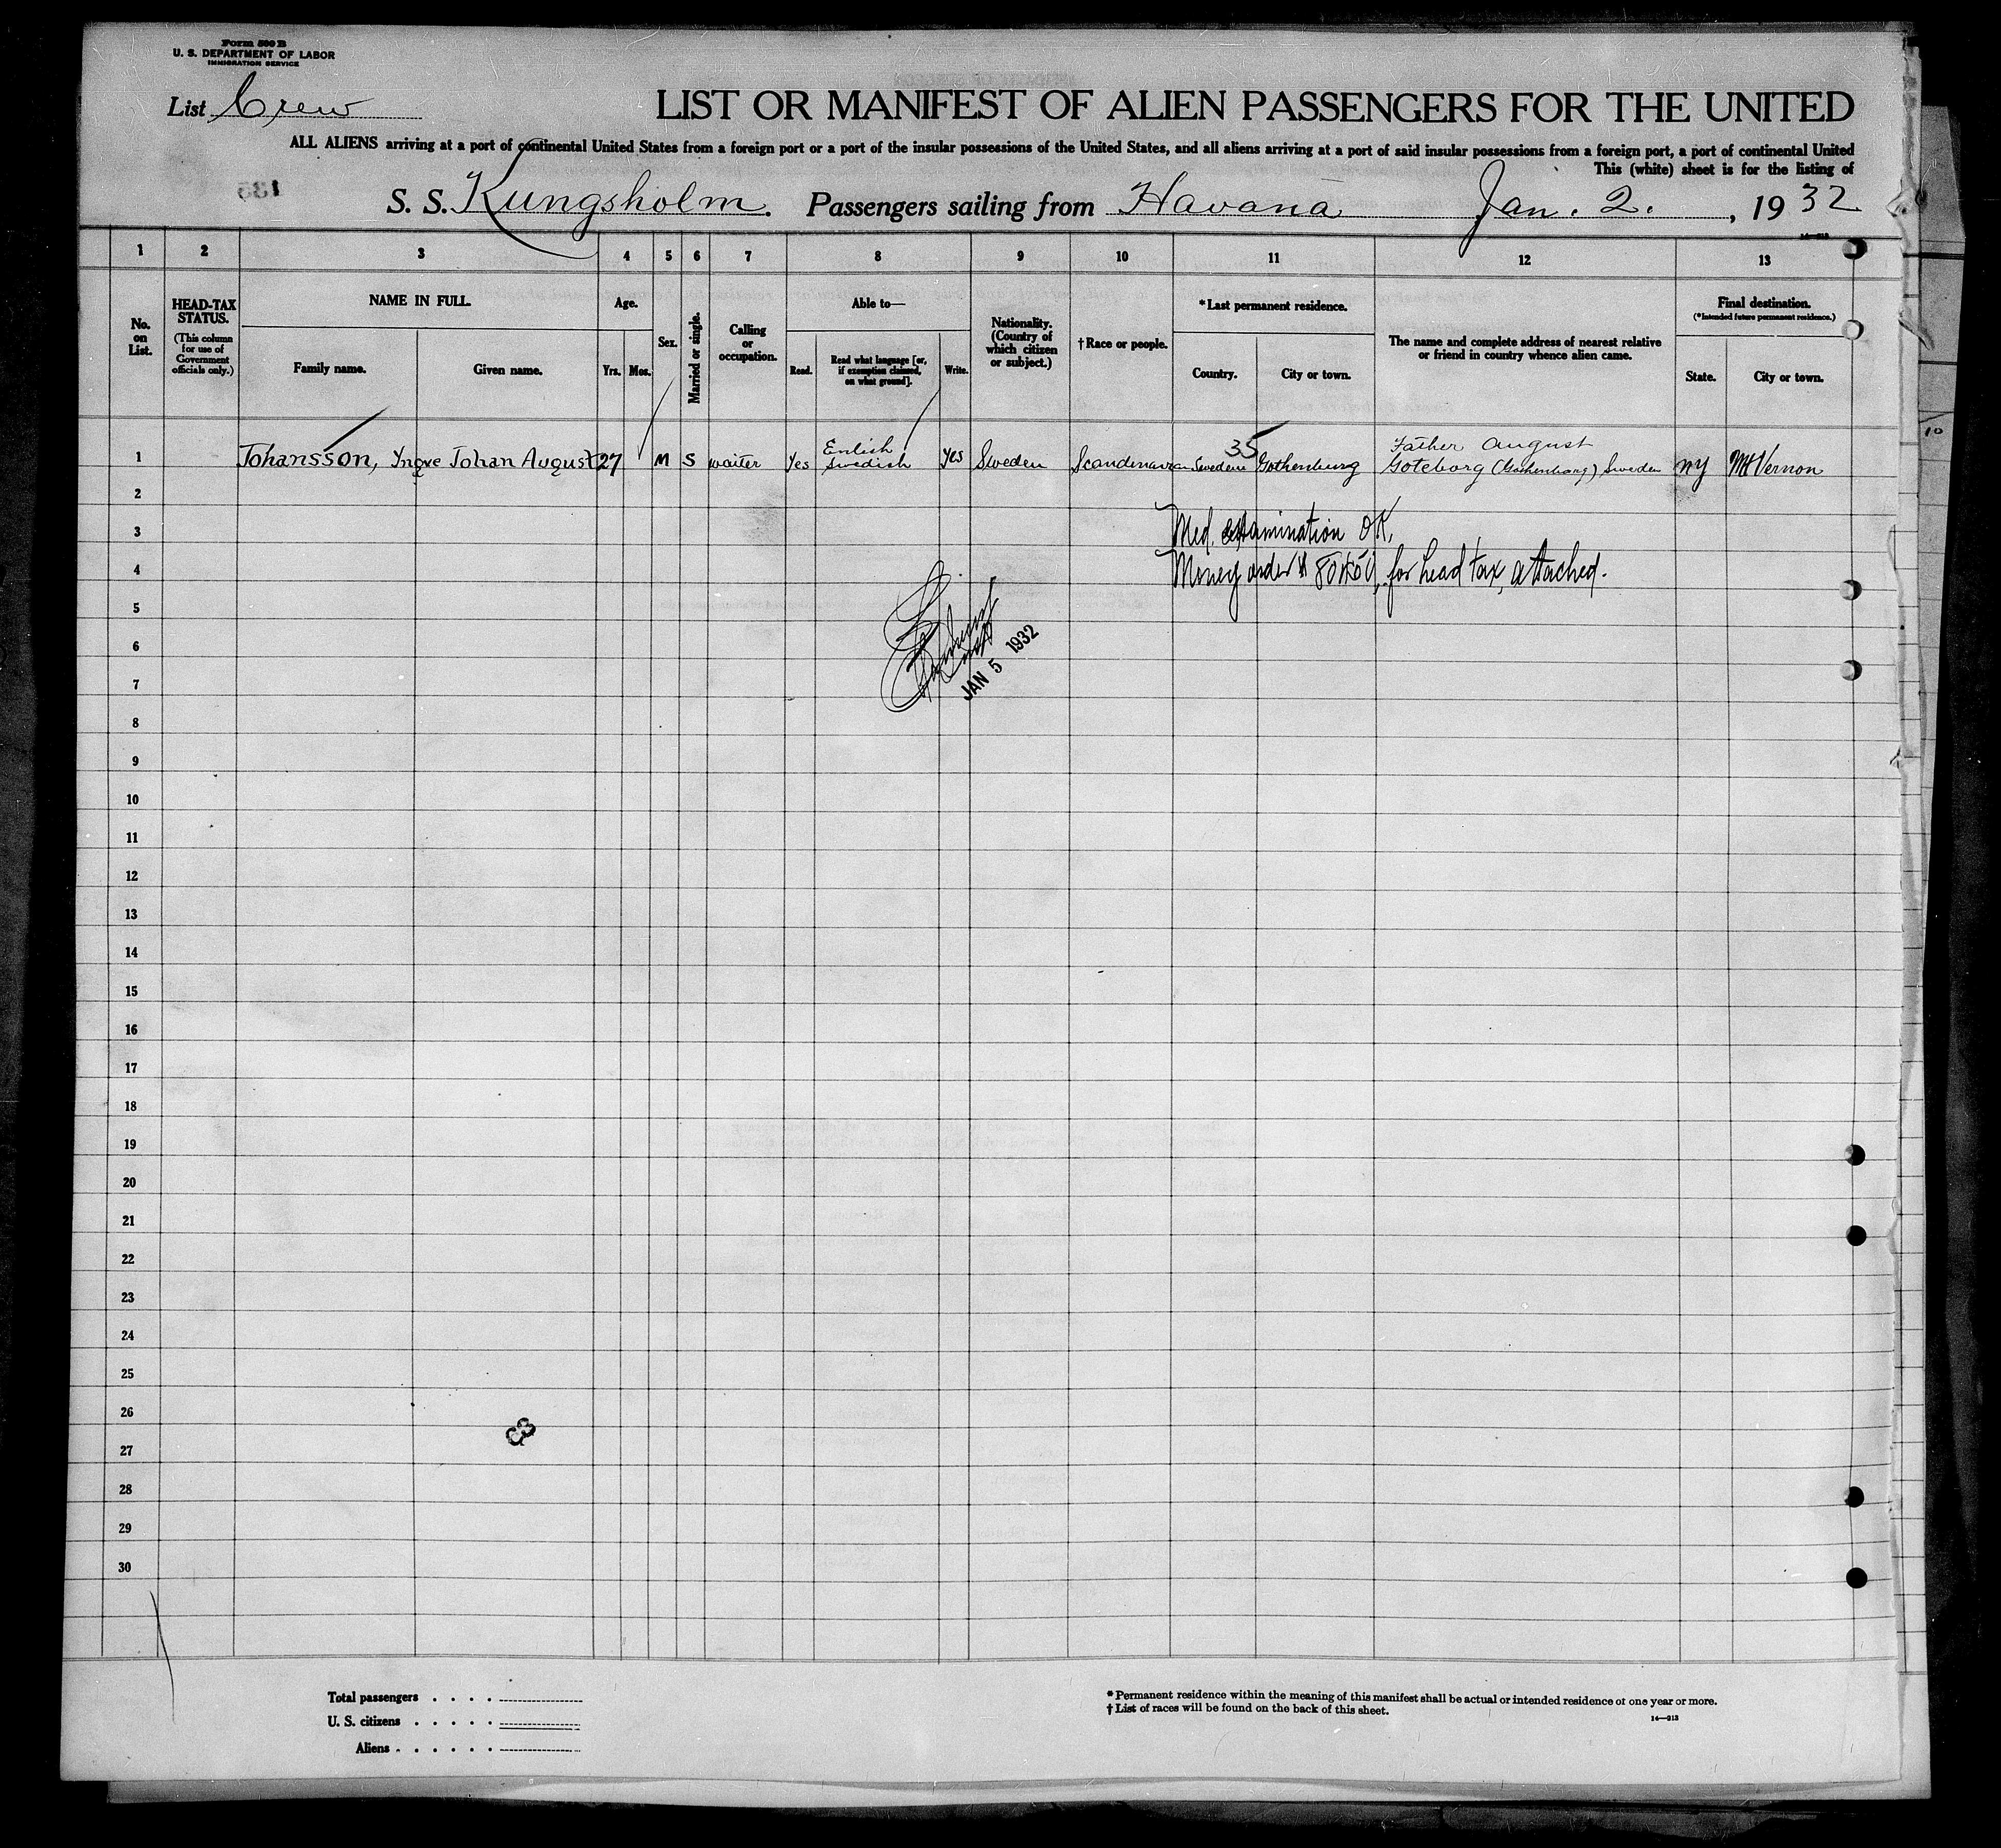 Form 500 B
U. S. DEPARTMENT OF LABOR
IMMIGRATION SERVICE
List Crew
LIST OR MANIFEST OF ALIEN PASSENGERS FOR THE UNITED
ALL ALIENS arriving at a port of continental United States from a foreign port or a port of the insular possessions of the United States, and all aliens arriving at a port of said insular possessions from a foreign port, a port of continental United
This (white) sheet is for the listing of
135
S. S. Kungsholm. Passengers sailing from Havana Jan. 2. , 19 32
1 2 3 4 5 6 7 8 9 10 11 12 13
No. on List.
HEAD-TAX STATUS.
(This column for use of Government officials only.)
NAME IN FULL.
Family name.
Given name.
Age.
Yrs. Mos.
Sex.
Married or single.
Calling or occupation.
Able to—
Read.
Read what language [or, if exemption claimed, on what ground].
Write.
Nationality. (Country of which citizen or subject.)
†Race or people.
*Last permanent residence.
Country.
City or town.
The name and complete address of nearest relative or friend in country whence alien came.
Final destination.
(*Intended future permanent residence.)
State.
City or town.
Enlish 35 Father August
1 Johansson, Yngve Johan August 27 M S waiter Yes Swedish Yes Sweden Scandinavian Sweden Gothenburg Goteborg (Gothenburg) Sweden NY Mt Vernon
2
Med. examination OK,
3
Money order # for head tax, attached.
4
5
6
JAN 5 1932
7
8
9
10
11
12
13
14
15
16
17
18
19
20
21
22
23
24
25
26
27
28
29
30
Total passengers
U. S. citizens
Aliens
* Permanent residence within the meaning of this manifest shall be actual or intended residence of one year or more.
† List of races will be found on the back of this sheet.
14—213